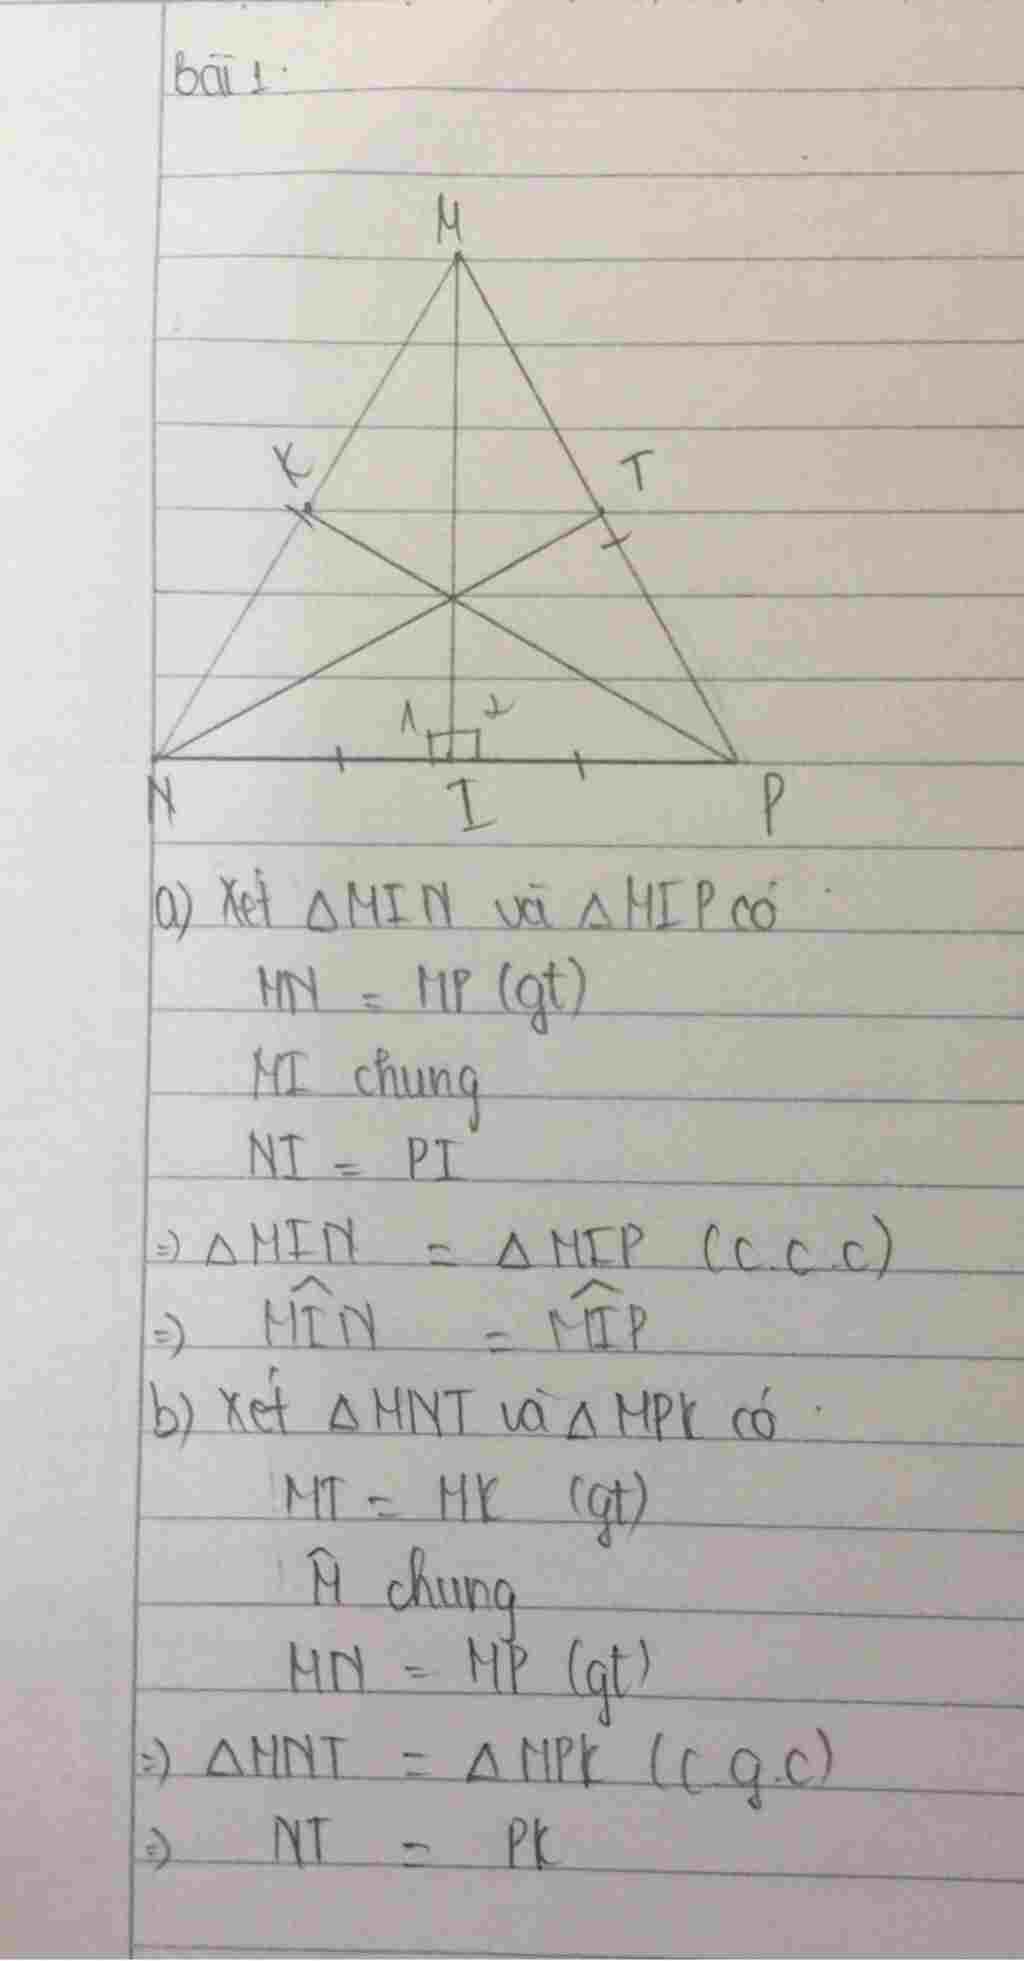 bài 1:
M
K
T
1
2
N
I
P
a) Xét △MIN và △MIP có
MN = MP (gt)
MI chung
NI = PI
=) △MIN = △MIP (c.c.c)
=) \widehat{MIN} = \widehat{MIP}
b) Xét △MNT và △MPK có
MT = MK (gt)
M̂ chung
MN = MP (gt)
=) △MNT = △MPK (c.g.c)
=) NT = PK